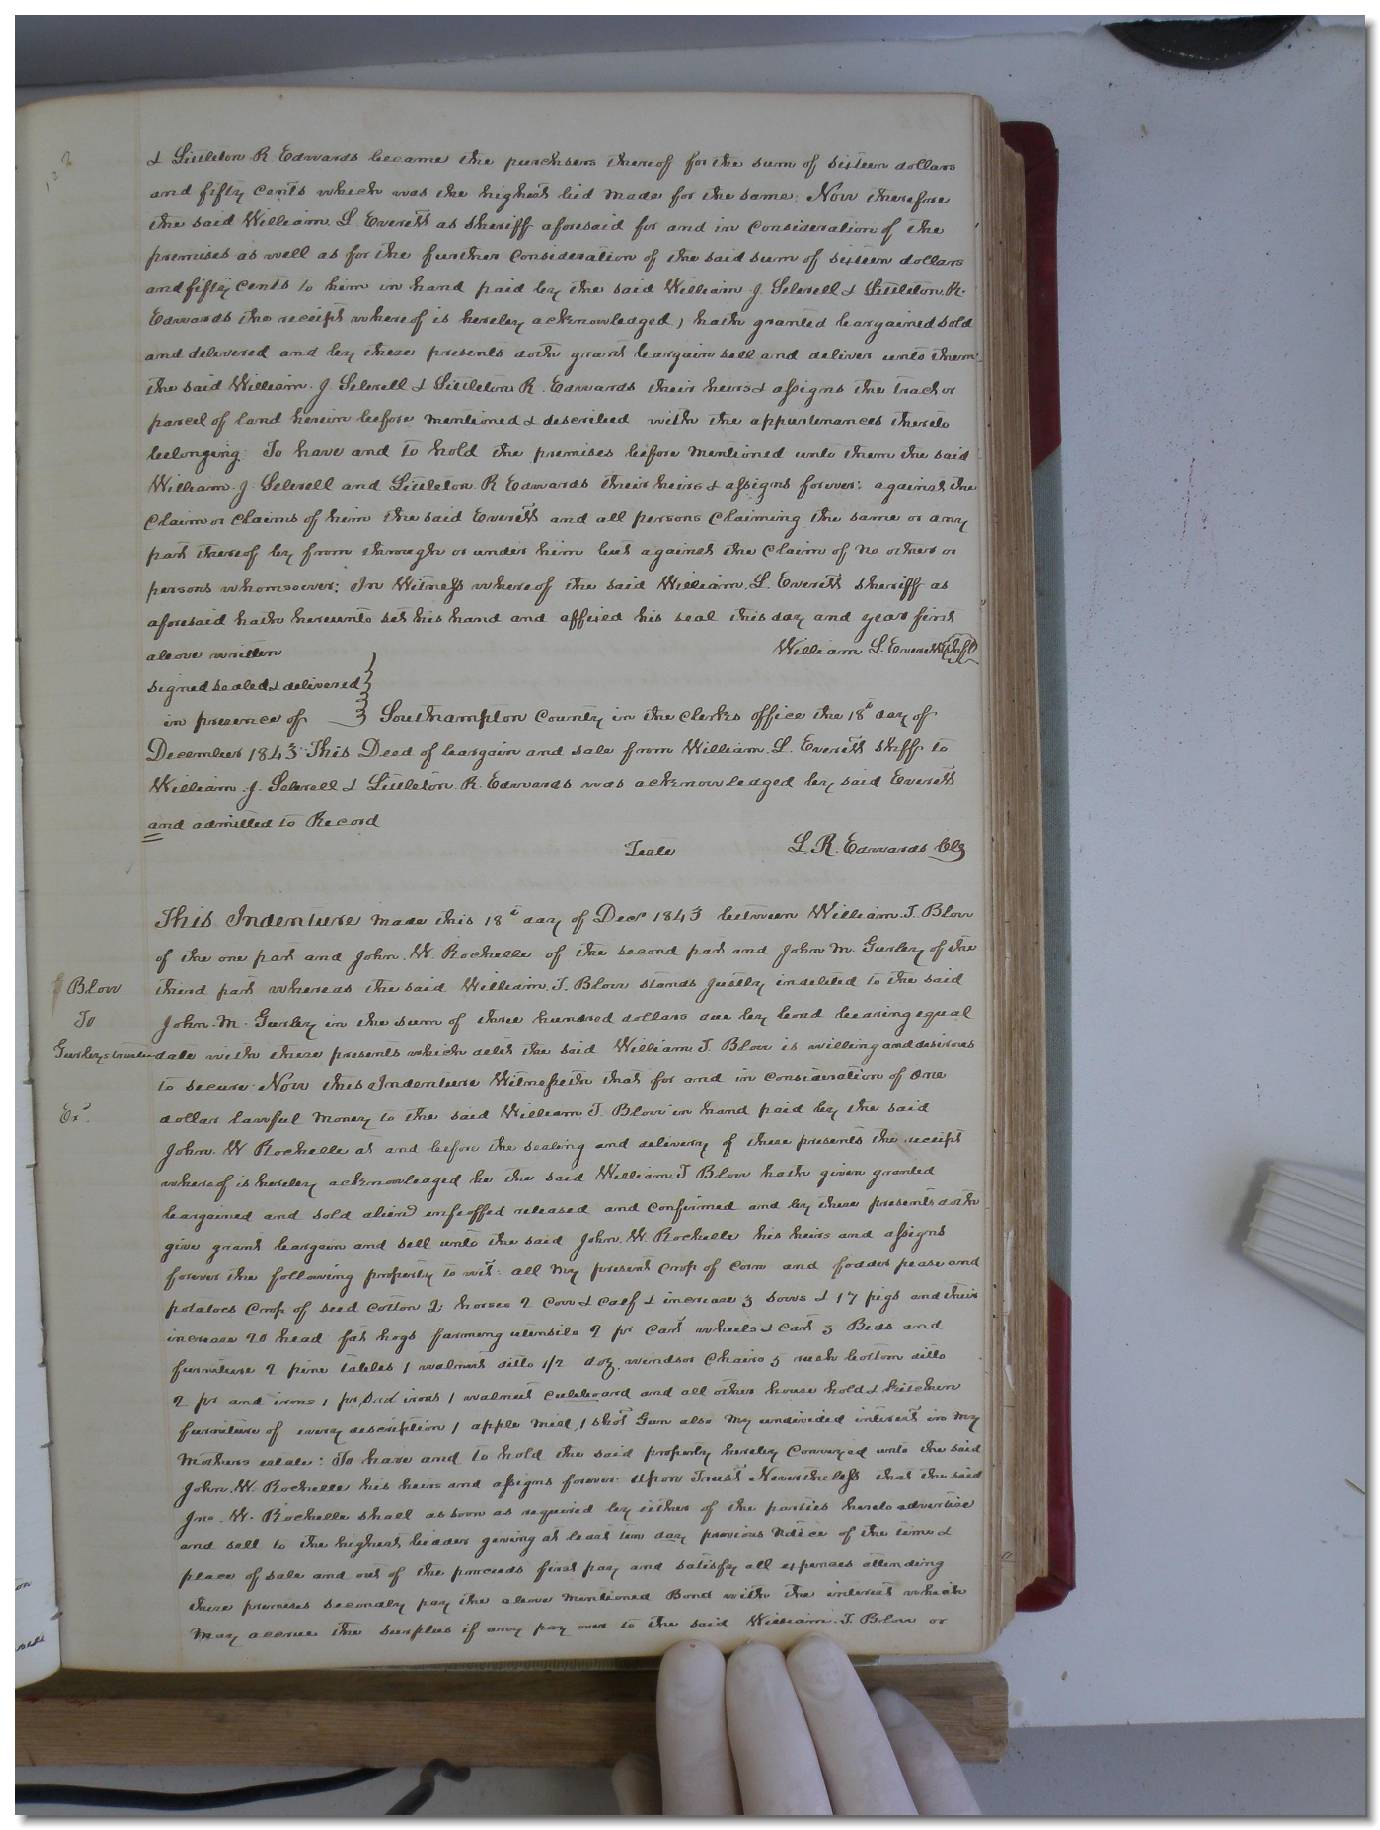 122
& Littleton R Edwards became the purchsers thereof for the sum of sixteen dollars
and fifty cents which was the highest bid made for the same: Now therefore
the said William L. Everett as sheriff aforesaid for and in consideration of the
premises as well as for the further consideration of the said sum of sixteen dollars
and fifty cents to him in hand paid by the said William J. Sebrell & Littleton R.
Edwards the receipt whereof is hereby acknowledged, hath granted bargained sold
and delivered and by these presents doth grant bargain sell and deliver unto them
the said William J. Sebrell & Littleton R. Edwards their heirs & assigns the tract or
parcel of land herein before mentioned & described with the appurtenances thereto
belonging: To have and to hold the premises before mentioned unto them the said
William J. Sebrell and Littleton R Edwards their heirs & assigns forever: against the
claim or claims of him the said Everett and all persons claiming the same or any
part thereof by from through or under him but against the claim of no other or
persons whomsoever: In Witness whereof the said William L. Everett sheriff as
aforesaid hath hereunto set his hand and affixed his seal this day and year first
above written William L. Everett
signed sealed & delivered
in presence of Southampton County in the clerks office the 18th day of
December 1843 This Deed of bargain and sale from William L. Everett Shff to
William J. Sebrell & Littleton R. Edwards was acknowledged by said Everett
and admitted to Record
Teste L. R. Edwards Clk
This Indenture made this 18th day of Decr 1843 between William T. Blow
of the one part and John W. Rochelle of the second part and John M. Gurley of the
Blow third part whereas the said William T. Blow stands justly indebted to the said
To John M. Gurley in the sum of three hundred dollars due by bond bearing equal
Gurleys trustee date with these presents which debt the said William T. Blow is willing and desirous
to secure Now this Indenture Witnesseth that for and in consideration of One
Exd. dollar lawful money to the said William T. Blow in hand paid by the said
John W Rochelle at and before the sealing and delivery of these presents the receipt
whereof is hereby acknowledged he the said William T Blow hath given granted
bargained and sold aliend enfeoffed released and confirmed and by these presents doth
give grant bargain and sell unto the said John W. Rochelle his heirs and assigns
forever the following property to wit: all my present crop of corn and fodder pease and
potatoes crop of seed cotton 2 horses 2 cow & calf & increase 3 sows & 17 pigs and their
increase 20 head fat hogs farming utensils 2 pr cart wheels & cart 3 Beds and
furniture 2 pine tables 1 walnut ditto 1/2 doz windsor chairs 5 rush bottom ditto
2 pr and irons 1 pr sad irons 1 walnut cubboard and all other house hold & kitchen
furniture of every description 1 apple mill, 1 shot Gun also my undivided interest in my
Mothers estate: To have and to hold the said property hereby conveyed unto the said
John W. Rochelle his heirs and assigns forever upon Trust Nevertheless that the said
Jno. W. Rochelle shall as soon as required by either of the parties hereto advertise
and sell to the highest bidder giving at least ten day previous notice of the time &
place of sale and out of the proceeds first pay and satisfy all expenses attending
these premises secondly pay the above mentioned Bond with the interest which
may accrue the surplus if any pay over to the said William T. Blow or